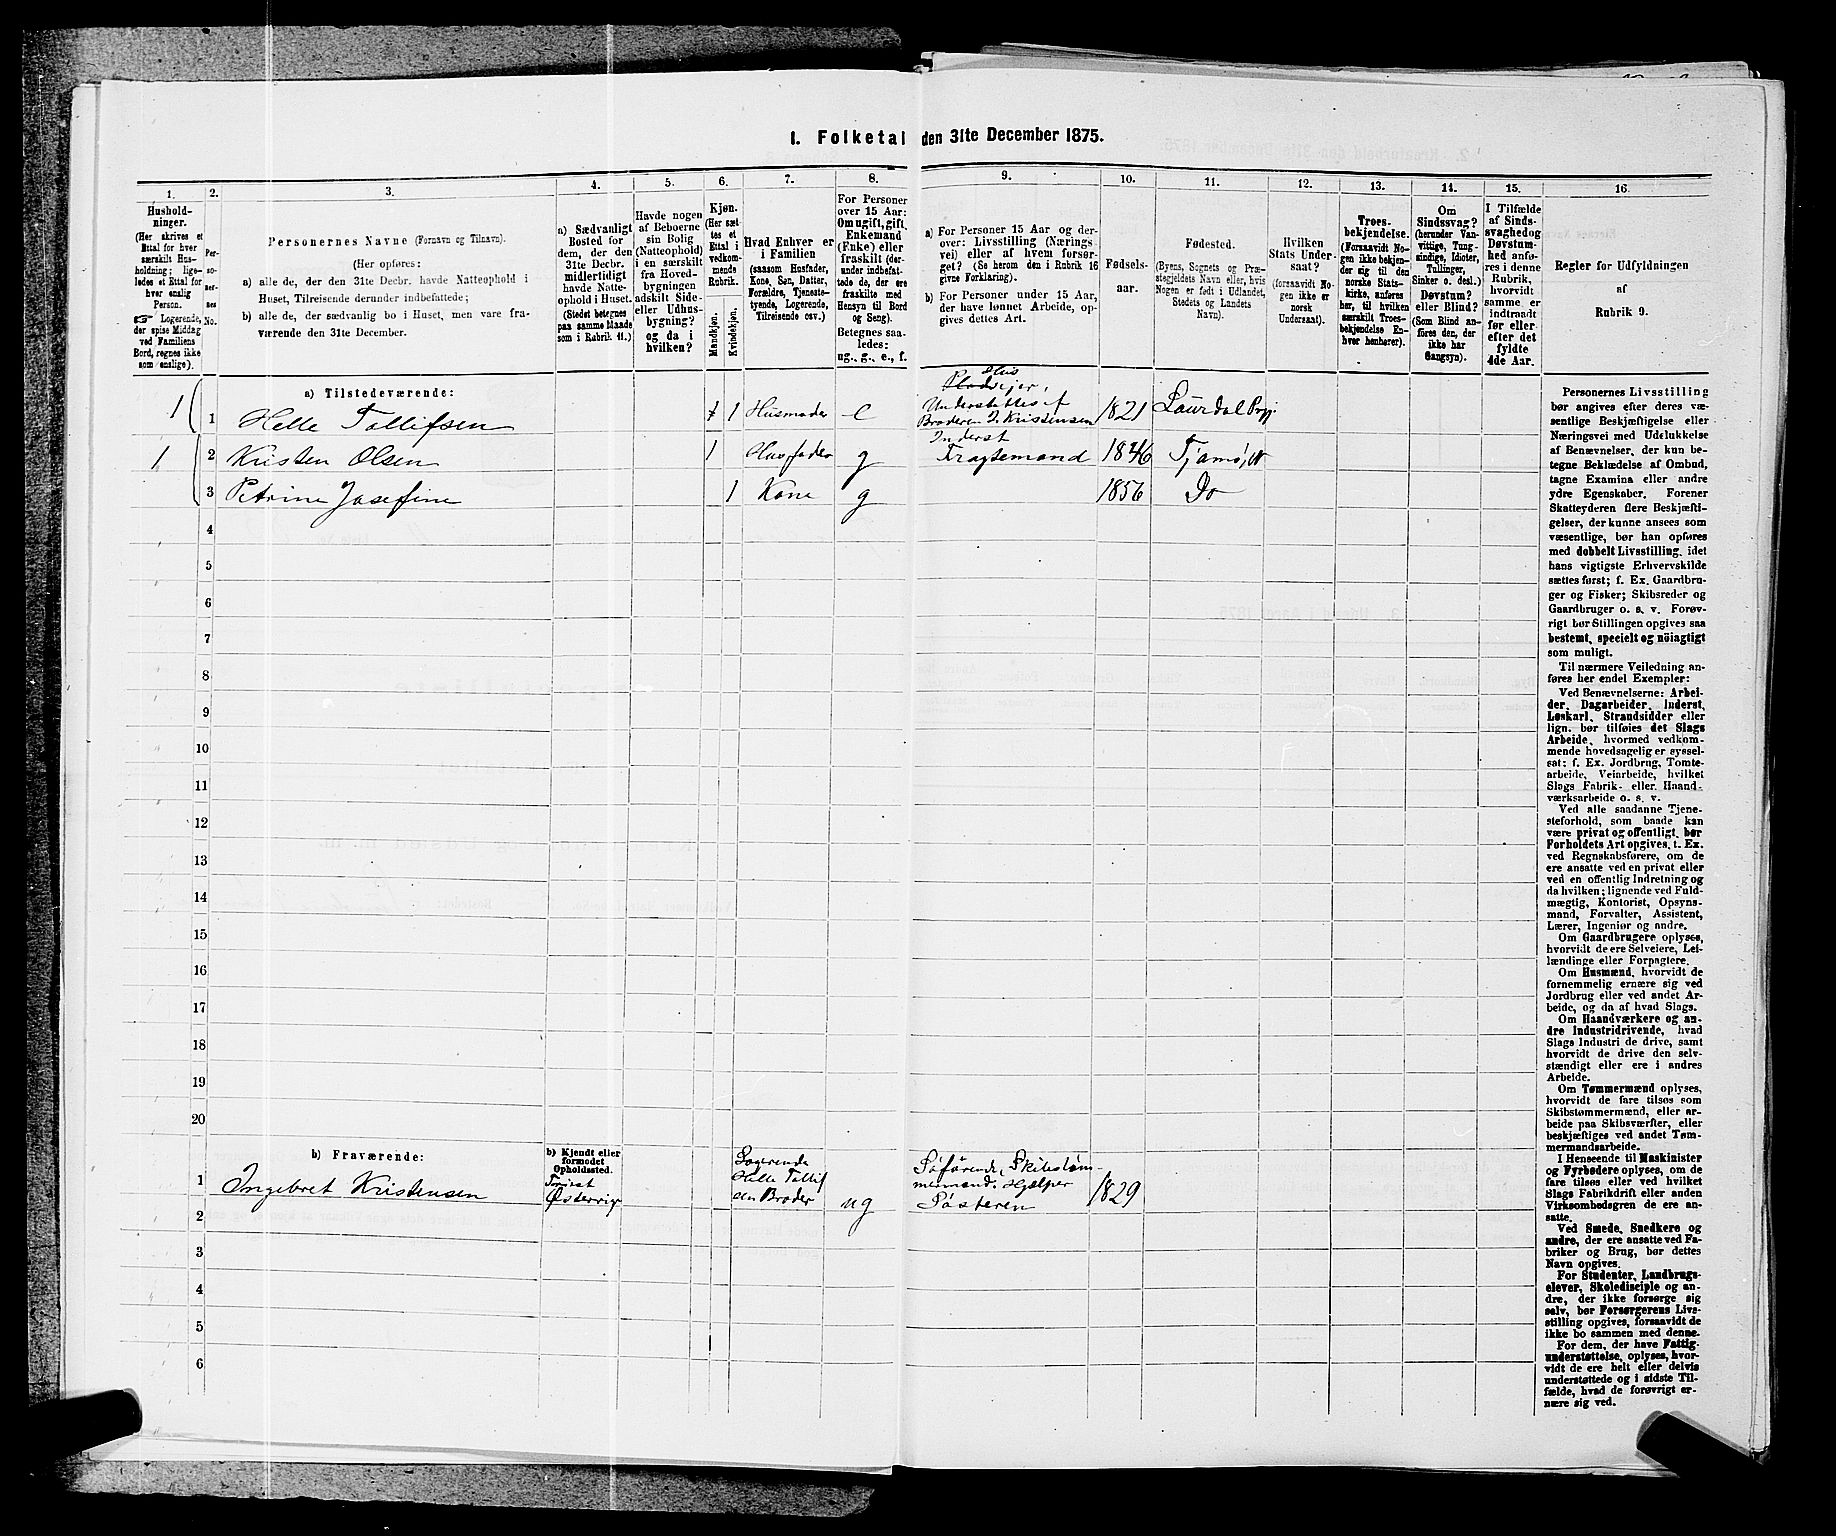 I. Folketal den 31te December 1875.
1.
2.
3.
4.
5.
6.
7.
8.
9.
10.
11.
12.
13.
14.
15.
16.
Hushold-
ninger.
(Her skrives et
Ettal for hver
særskilt Hus-
holdning; lige-
ledes et Ettal for
hver enslig
Person.
☞ Logerende,
der spise Middag
ved Familiens
Bord, regnes ikke
som enslige).
Per-
so-
ner-
nes
No.
Personernes Navne (Fornavn og Tilnavn).
(Her opføres:
a) alle de, der den 31te Decbr. havde Natteophold i
Huset, Tilreisende derunder indbefattede;
b) alle de, der sædvanlig bo i Huset, men vare fra-
værende den 31te December.
a) Sædvanligt
Bosted for
dem, der den
31te Decbr.
midlertidigt
havde Natte-
ophold i Huset.
(Stedet betegnes
paa samme Maade
som i Rubrik 11.)
Havde nogen
af Beboerne
sin Bolig
(Natteophold)
i en særskilt
fra Hoved-
bygningen
adskilt Side-
eller Udhus-
bygning?
og da i
hvilken?
Kjøn.
(Her sæt-
tes et
Ettal i
vedkom-
mende
Rubrik.
Mandkjøn.
Kvindekjøn.
Hvad Enhver er
i Familien
(saasom Husfader,
Kone, Søn, Datter,
Forældre, Tjeneste-
tyende, Logerende,
Tilreisende osv.)
For Personer
over 15 Aar:
Om ugift, gift,
Enkemand
(Enke) eller
fraskilt (der-
under indbefat-
tede de, der ere
fraskilte med
Hensyn til Bord
og Seng).
Betegnes saa-
ledes:
ug., g., e., f.
a) For Personer 15 Aar og der-
over: Livsstilling (Nærings-
vei) eller af hvem forsør-
get? (Se herom den i Rubrik 16
givne Forklaring).
b) For Personer under 15 Aar,
der have lønnet Arbeide, op-
gives dettes Art.
Fødsels-
aar.
Fødested.
(Byens, Sognets og Præ-
stegjeldets Navn eller, hvis
Nogen er født i Udlandet,
Stedets og Landets
Navn).
Hvilken
Stats Under-
saat?
(forsaavidt No-
gen ikke er
norsk
Undersaat).
Troes-
bekjendelse.
(Forsaavidt No-
gen ikke bekjen-
der sig til den
norske Stats-
kirke, anføres
her, til hvilken
særskilt Troes-
bekjendelse En-
hver henhører).
Om
Sindssvag?
(herunder Van-
vittige, Tung-
sindige, Idioter,
Tullinger,
Sinker o. desl.)
Døvstum?
eller Blind?
(Som Blind an-
føres den, der
ikke har
Gangsyn).
I Tilfælde
af Sinds-
svaghed og
Døvstum-
hed anfø-
res i denne
Rubrik,
hvorvidt
samme er
indtraadt
før eller
efter det
fyldte
4de Aar.
Regler for Udfyldningen
af
Rubrik 9.
a) Tilstedeværende:
1 1 Helle Tollifsen 1 Husmoder e Husejer, Understøttes af Broderen I. Kristensen 1821 Laurdal Prgj
1 2 Kristen Olsen 1 Husfader g Inderst Fragtemand 1846 Tjømø
3 Petrine Josefine 1 Kone g 1856 Do
4
5
6
7
8
9
10
11
12
13
14
15
16
17
18
19
20
b) Fraværende:
b) Kjendt eller
formodet
Opholdssted.
1 Ingebret Kristensen Østerriis Logerende Helle Tollifsen Broder ug Søfarende, Skibstømmermand, Hjælper Søsteren 1829
2
3
4
5
6
Personernes Livsstilling
bør angives efter deres væ-
sentlige Beskjæftigelse eller
Næringsvei med Udelukkelse
af Benævnelser, der kun be-
tegne Beklædelse af Ombud,
tagne Examina eller andre
ydre Egenskaber. Forener
Skatteyderen flere Beskjæfti-
gelser, der kunne ansees som
væsentlige, bør han opføres
med dobbelt Livsstilling, idet
hans vigtigste Erhvervskilde
sættes først; f. Ex. Gaardbru-
ger og Fisker; Skibsreder og
Gaardbruger o. s. v. Forøv-
rigt bør Stillingen opgives saa
bestemt, specielt og nöiagtigt
som muligt.
Til nærmere Veiledning an-
føres her endel Exempler:
Ved Benævnelserne: Arbei-
der, Dagarbeider, Inderst,
Løskarl, Strandsidder eller
lign. bør tilføies det Slags
Arbeide, hvormed vedkom-
mende hovedsagelig er syssel-
sat; f. Ex. Jordbrug, Tomte-
arbeide, Veiarbeide, hvilket
Slags Fabrik- eller Haand-
værksarbeide o. s. v.
Ved alle saadanne Tjene-
steforhold, som baade kan
være privat og offentligt, bør
Forholdets Art opgives, t. Ex.
ved Regnskabsførere, om de
ere ansatte ved en privat eller
ved en offentlig Indretning og
da hvilken; lignende ved Fuld-
mægtig, Kontorist, Opsyns-
mand, Forvalter, Assistent,
Lærer, Ingeniør og andre.
Om Gaardbrugere oplyses,
hvorvidt de ere Selveiere, Lei-
lændinge eller Forpagtere.
Om Husmænd, hvorvidt de
fornemmelig ernære sig ved
Jordbrug eller ved andet Ar-
beide, og da af hvad Slags.
Om Haandværkere og an-
dre Industridrivende, hvad
Slags Industri de drive, samt
hvorvidt de drive den selv-
stændigt eller ere i andres
Arbeide.
Om Tømmermænd oplyses,
hvorvidt de fare tilsøs som
Skibstømmermænd, eller ar-
beide paa Skibsværfter, eller
beskjæftiges ved andet Tøm-
mermandsarbeide.
I Henseende til Maskinister
og Fyrbødere oplyses, om de
fare tilsøs eller ved hvilket
Slags Fabrikdrift eller anden
Virksombedsgren de ere an-
satte.
Ved Smede, Snedkere og
andre, der ere ansatte ved Fa-
briker og Brug, bør dettes
Navn opgives.
For Studenter, Landbrugs-
elever, Skoledisciple og an-
dre, der ikke forsørge sig
selv, bør Forsørgerens Livs-
stilling opgives, forsaavidt de
ikke bo sammen med denne.
For dem, der have Fattig-
understøttelse, oplyses, hvor-
vidt de ere helt eller delvis
understøttede og i sidste Til-
fælde, hvad de forøvrigt er-
nære sig ved.